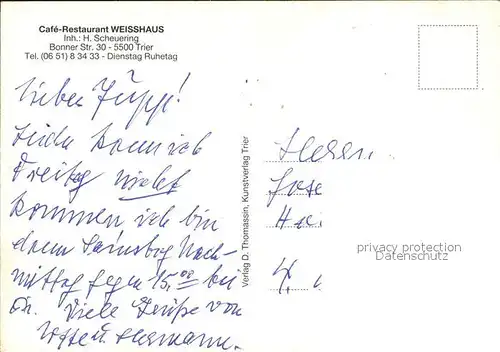 Café-Restaurant WEISSHAUS
Inh.: H. Scheuering
Bonner Str. 30 - 5500 Trier
Tel. (06 51) 8 34 33 - Dienstag Ruhetag
Lieber Jupp!
Leider kann ich
Freitag nicht
kommen, ich bin
dann Samstag Nach-
mittag gegen 15.00 bei
Dir. Viele Grüße von
u. Hermann.
Verlag D. Thomassin, Kunstverlag Trier
Herrn
Jose
privacy protection
Datenschutz